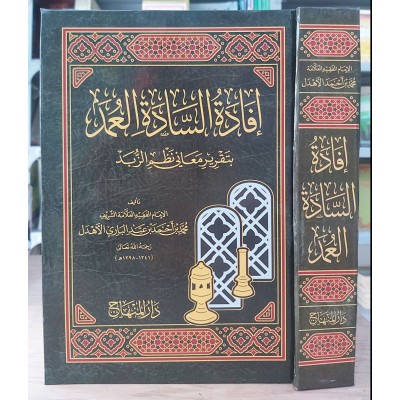 إفادة السادة العمد
بتقرير معاني نظم الزبد
تأليف
الإمام الفقيه العلامة الشريف
محمد بن أحمد بن عبد الباري الأهدل
رحمه الله تعالى
(١٢٤١-١٢٩٨هـ)
دار المنهاج
الإمام الفقيه العلامة
محمد بن أحمد الأهدل
إفادة
السادة
العمد
دار المنهاج